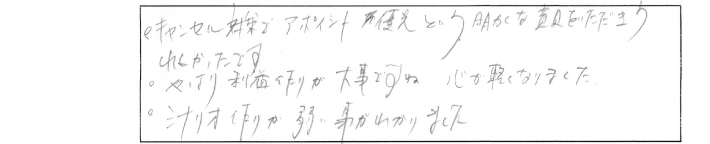 ・キャンセル対策でアポイント優先という明かな意見をいただきう
れしかったです
・やはり利益作りが大事ですね 心が軽くなりました、
・シナリオ作りが弱い事がわかりました